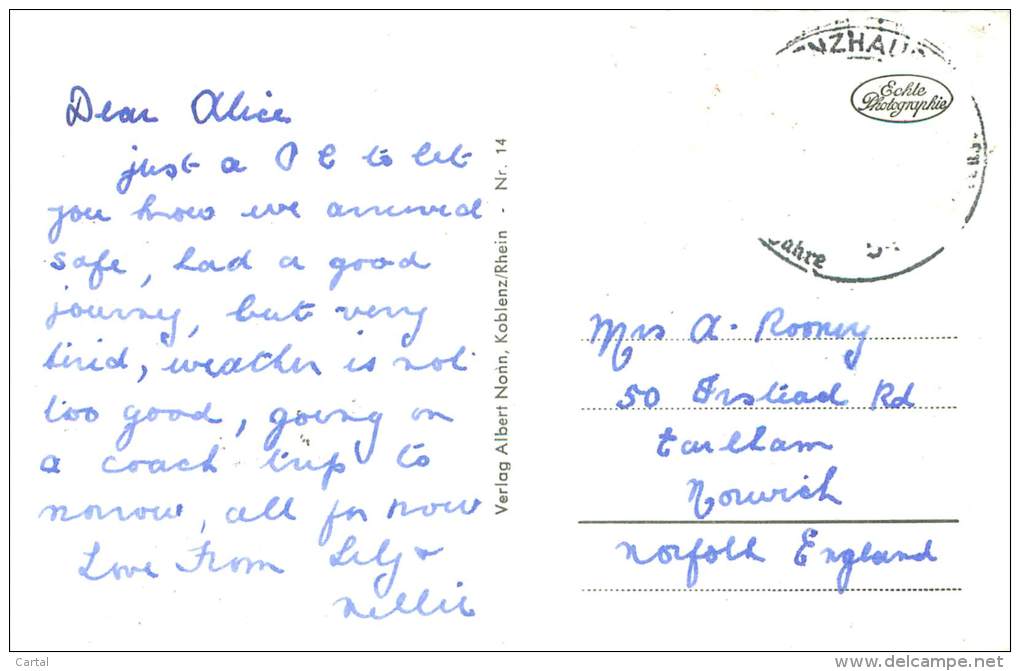 Dear Alice
just a P C to let
you know we arrived
safe, had a good
journey, but very
tired, weather is not
too good, going on
a coach trip to
morrow, all for now
Love From Lily &
Nellie
Verlag Albert Nonn, Koblenz/Rhein - Nr. 14
NZHAU
Echte
Photographie
Jahre
Mrs A. Rooney
50 Irstead Rd
Earlham
Norwich
Norfolk England
Cartal
www.delcampe.net